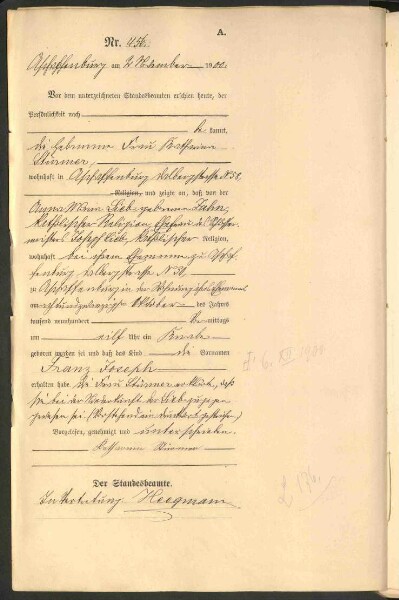 A.
Nr. 456.
Aschaffenburg am 2 November 1900.
Vor dem unterzeichneten Standesbeamten erschien heute, der
Persönlichkeit nach
be kannt,
die Hebamme Frau Katharina
Stürmer,
wohnhaft in Aschaffenburg
Religion, und zeigte an, daß von der
Anna Maria Lieb geborene Zahn,
katholischer Religion, Ehefrau des
meisters Joseph Lieb, katholischer Religion,
wohnhaft bei ihrem Ehemanne zu Aschaf-
fenburg
zu Aschaffenburg in der Wohnung ihres Ehemannes
am Oktober des Jahres
tausend neunhundert mittags
um eilf Uhr ein Knabe
geboren worden sei und daß das Kind die Vornamen
Franz Joseph
erhalten habe. Die Frau Stürmer erklärte, daß
sie bei der Niederkunft der Lieb zugegen
gewesen sei.
† 6. XI 1900
Vorgelesen, genehmigt und unterschrieben.
Katharina Stürmer
Der Standesbeamte.
In Vertretung: Heegmann